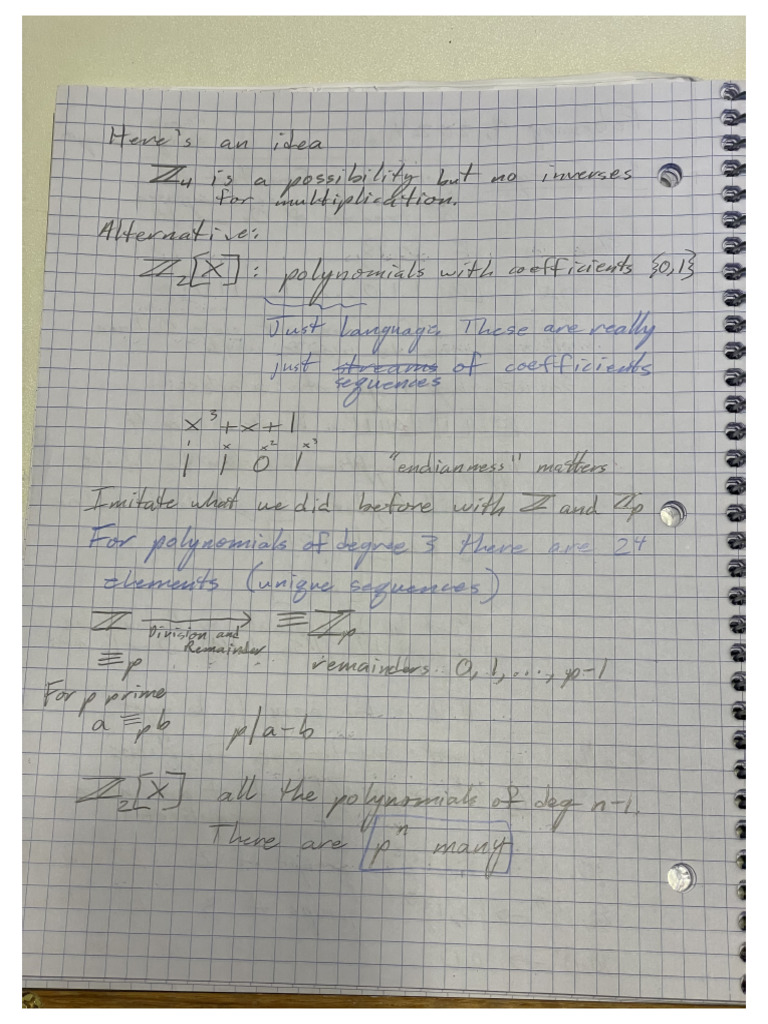 Here's an idea
ℤ₄ is a possibility but no inverses
for multiplication.
Alternative:
ℤ₂[X] : polynomials with coefficients {0,1}
Just language. These are really
just ~~streams~~ of coefficients
sequences
x³+x+1
1 x x² x³
1 1 0 1 "endianness" matters
Imitate what we did before with ℤ and ℤp
For polynomials of degree 3 there are 24
elements (unique sequences)
ℤ → ≡ ℤp
Division and
Remainder
≡p remainders 0, 1, ..., p-1
For p prime
a ≡p b p | a-b
ℤ₂[X] all the polynomials of deg n-1.
There are pⁿ many